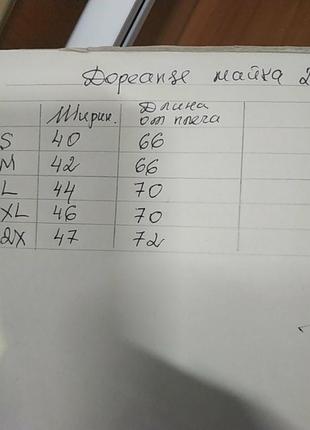 Дореанзе майка 2
Ширин. Длина от плеча
S 40 66
M 42 66
L 44 70
XL 46 70
2X 47 72